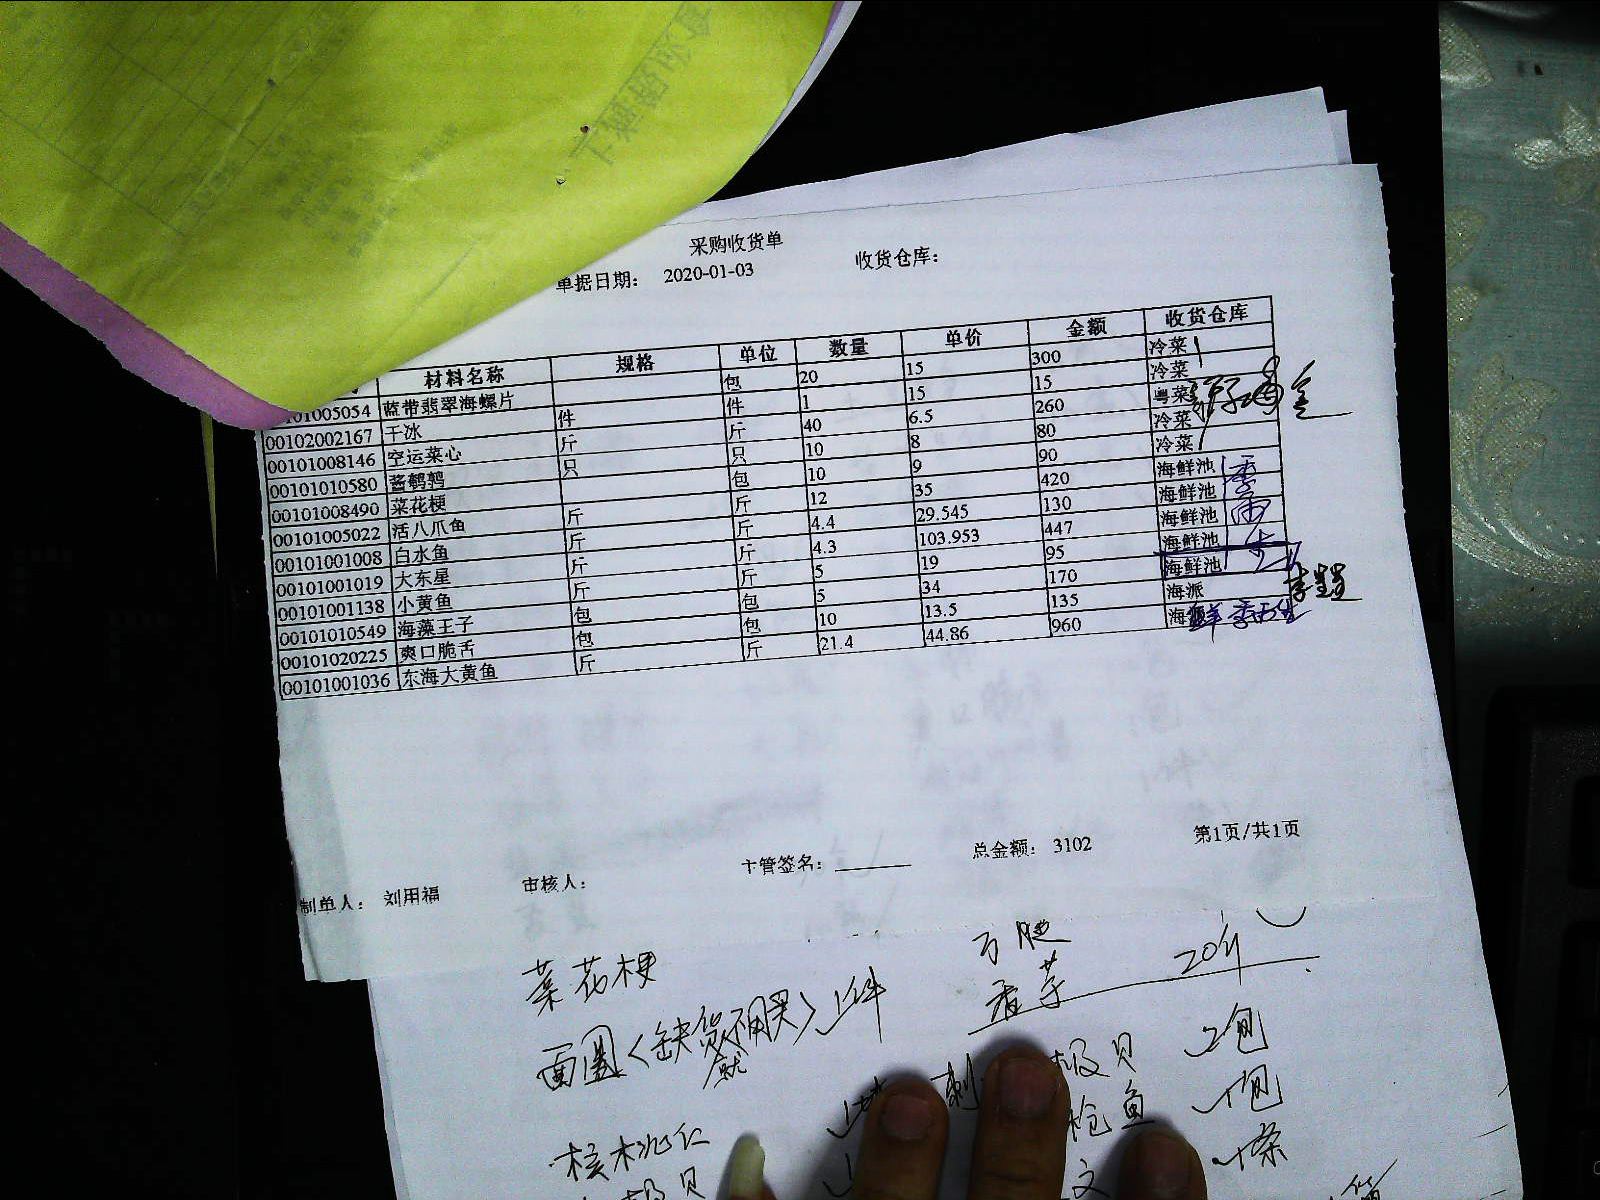 采购收货单
单据日期： 2020-01-03 收货仓库：
材料名称 规格 单位 数量 单价 金额 收货仓库
01005054 蓝带翡翠海螺片 包 20 15 300 冷菜
00102002167 干冰 件 件 1 15 15 冷菜
00101008146 空运菜心 斤 斤 40 6.5 260 粤菜
00101010580 酱鹌鹑 只 只 10 8 80 冷菜
00101008490 菜花梗 包 10 9 90 冷菜
00101005022 活八爪鱼 斤 斤 12 35 420 海鲜池
00101001008 白水鱼 斤 斤 4.4 29.545 130 海鲜池
00101001019 大东星 斤 斤 4.3 103.953 447 海鲜池
00101001138 小黄鱼 斤 斤 5 19 95 海鲜池
00101010549 海藻王子 包 包 5 34 170 海鲜池
00101020225 爽口脆舌 包 包 10 13.5 135 海派
00101001036 东海大黄鱼 斤 斤 21.4 44.86 960 海鲜
制单人： 刘用福 审核人： 主管签名： 总金额： 3102 第1页/共1页
菜花梗 方腿
面圆〈缺货就不用买〉 1件 香芋 20斤
核桃仁 极贝 2包
极贝 枪鱼 1包
1条